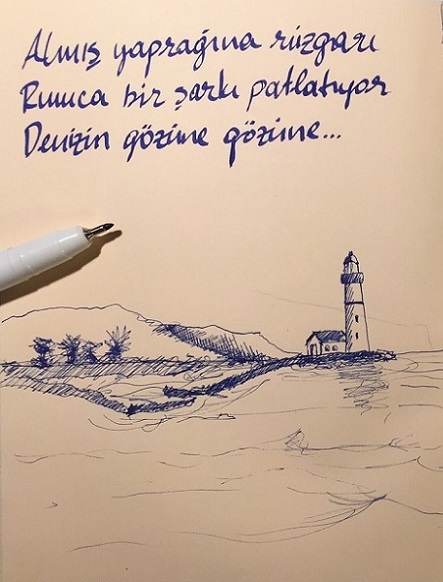 Almış yaprağına rüzgarı
Rumca bir şarkı patlatıyor
Denizin gözüne gözüne...